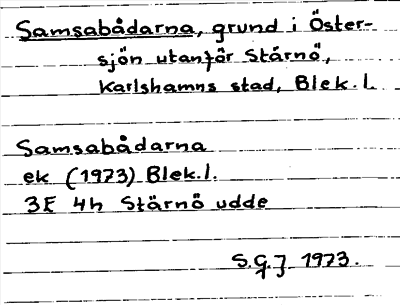 Samsabådarna, grund i Öster-
sjön utanför Stärnö,
Karlshamns stad, Blek.l.
Samsabådarna
ek (1973) Blek.l.
3E 4h Stärnö udde
S.G.J 1973.